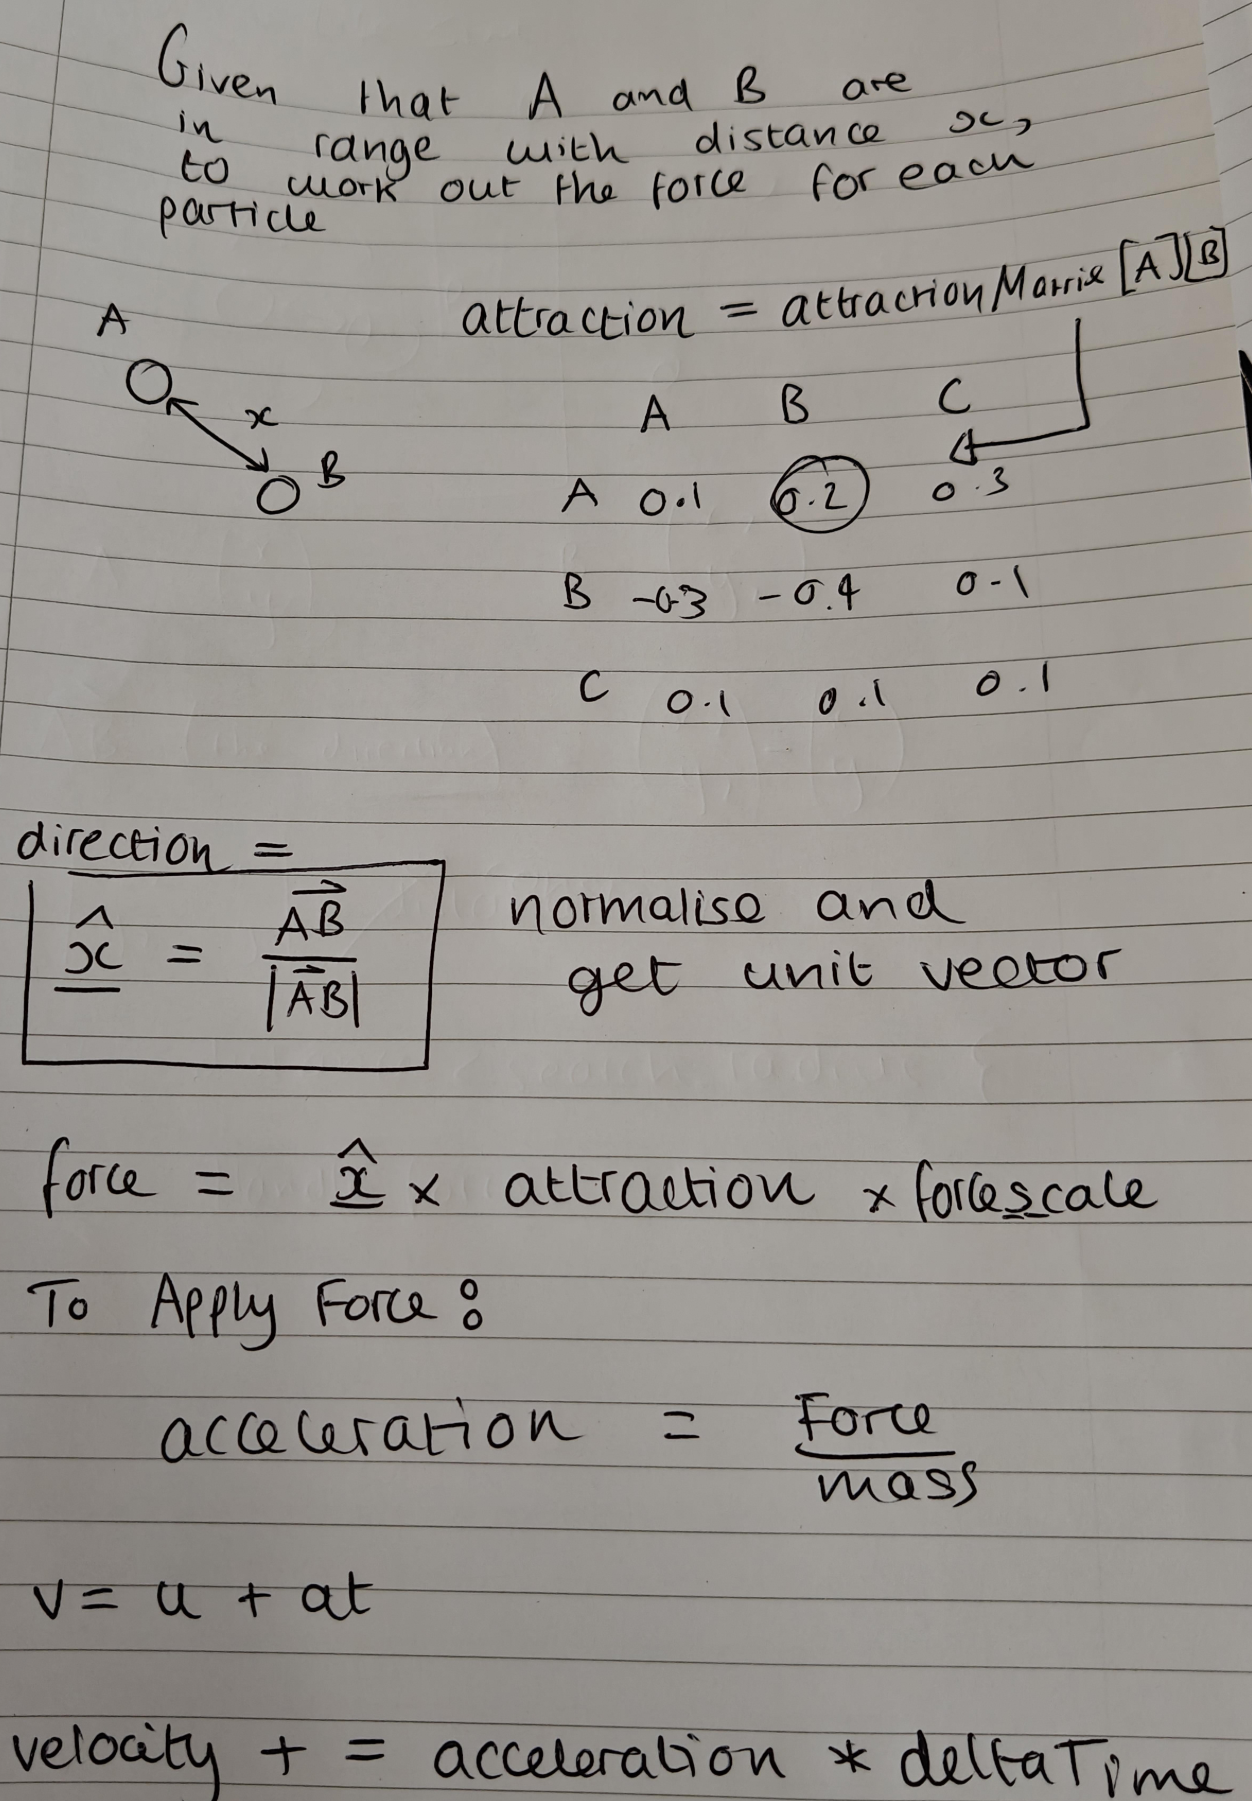 Given that A and B are
in range with distance x,
to work out the force for each
particle
attraction = attractionMatrix [A][B]
A
x
B
A B C
A 0.1 0.2 0.3
B -0.3 -0.4 0.1
C 0.1 0.1 0.1
direction =
x̂ = AB→ / |AB→|
normalise and
get unit vector
force = x̂ × attraction × forcescale
To Apply Force:
acceleration = Force / mass
v = u + at
velocity += acceleration * deltaTime